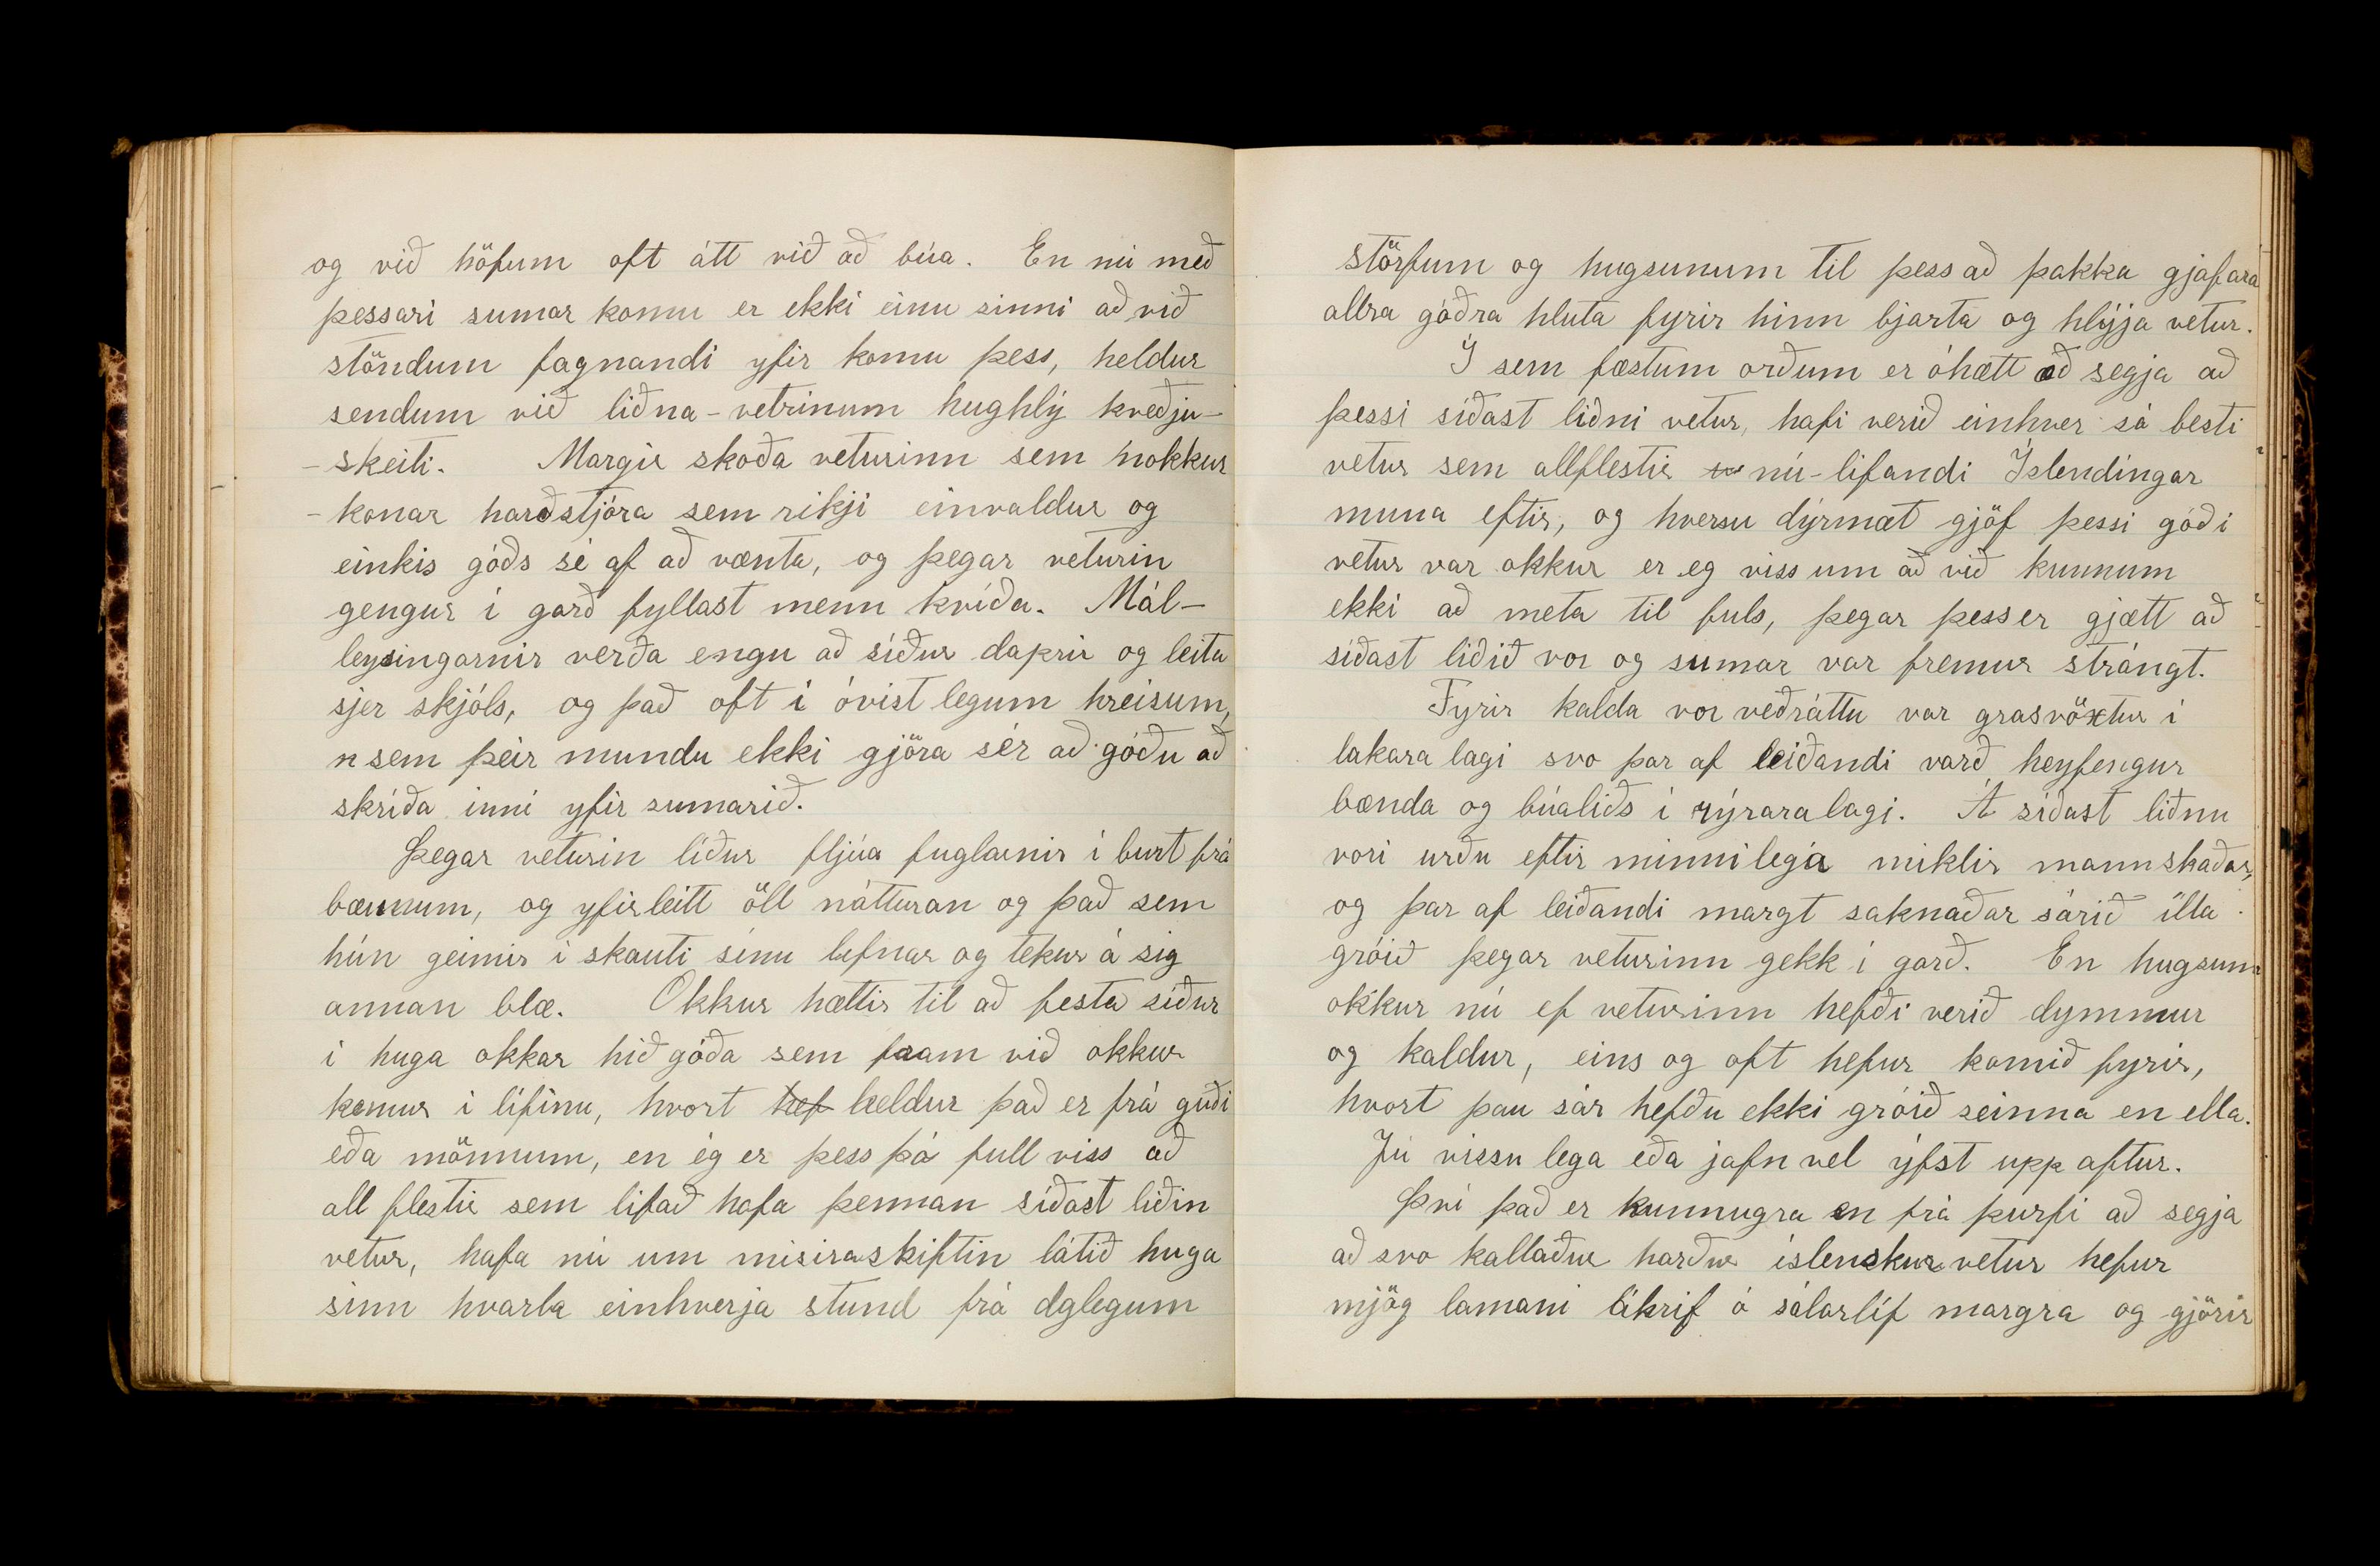 og við höfum oft átt við að búa. En nú með
þessari sumar komu er ekki einu sinni að við
stöndum fagnandi yfir komu þess, heldur
sendum við liðna-vetrinum hughlý kveðju-
-skeiti. Margir skoða veturinn sem nokkur
-konar harðstjóra sem rikji einvaldur og
einkis góðs sé af að vænta, og þegar veturin
gengur í garð fyllast menn kvíða. Mál-
leysingarnir verða engu að síður daprir og leita
sjer skjóls, og það oft í óvistlegum hreisum,
n sem þeir mundu ekki gjöra sér að góðu að
skríða inni yfir sumarið.
Þegar veturin líður fljúa fuglarnir í burt frá
bænum, og yfirleitt öll nátturan og það sem
hún geimir í skauti sínu lifnar og tekur á sig
annan blæ. Okkur hættir til að festa síður
í huga okkar hið góða sem fram við okkur
kemur í lífinu, hvort hef heldur það er frá guði
eða mönnum, en ég er þess þó full viss að
all flestir sem lifað hafa þennan síðast liðin
vetur, hafa nú um misiraskiftin látið huga
sinn hvarla einhverja stund frá dglegum
störfum og hugsunum til þess að þakka gjafara
allra góðra hluta fyrir hinn bjarta og hlýja vetur.
Í sem fæstum orðum er óhætt að segja að
þessi síðast liðni vetur, hafi verið einhver sá besti
vetur sem allflestir nú-lifandi Íslendingar
muna eftir, og hversu dýrmæt gjöf þessi góði
vetur var okkur er eg viss um að við kunnum
ekki að meta til fuls, þegar þess er gjætt að
síðast liðið vor og sumar var fremur strángt.
Fyrir kalda vor veðráttu var grasvöxtur í
lakara lagi svo þar af leiðandi varð heyfengur
bænda og búaliðs í rýraralagi. Á síðast liðnu
vori urðu eftir minnilega miklir mannskaðar,
og þar af leiðandi margt saknaðar sárið illa
gróið þegar veturinn gekk í garð. En hugsum
okkur nú ef veturinn hefði verið dymmur
og kaldur, eins og oft hefur komið fyrir,
hvort þau sár hefðu ekki gróið seinna en ella.
Jú vissu lega eða jafn vel ýfst upp aftur.
Því það er kunnugra en frá þurfi að segja
að svo kallaður harður íslenskur vetur hefur
mjög lamani áhrif á sálarlíf margra og gjörir